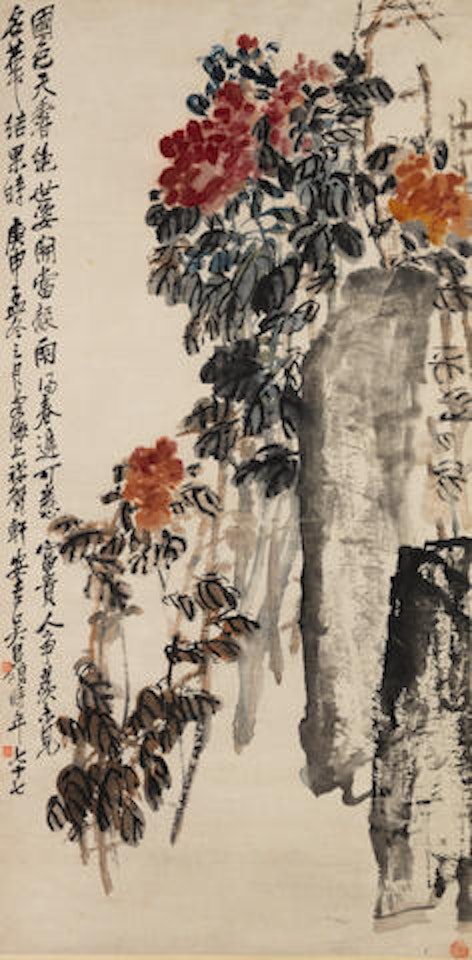 國色天香絕世姿開當穀雨得春遲可富貴人爭羨未見
名花結果時 庚申孟冬之月客海上禪甓軒 安吉吳昌碩時年七十七